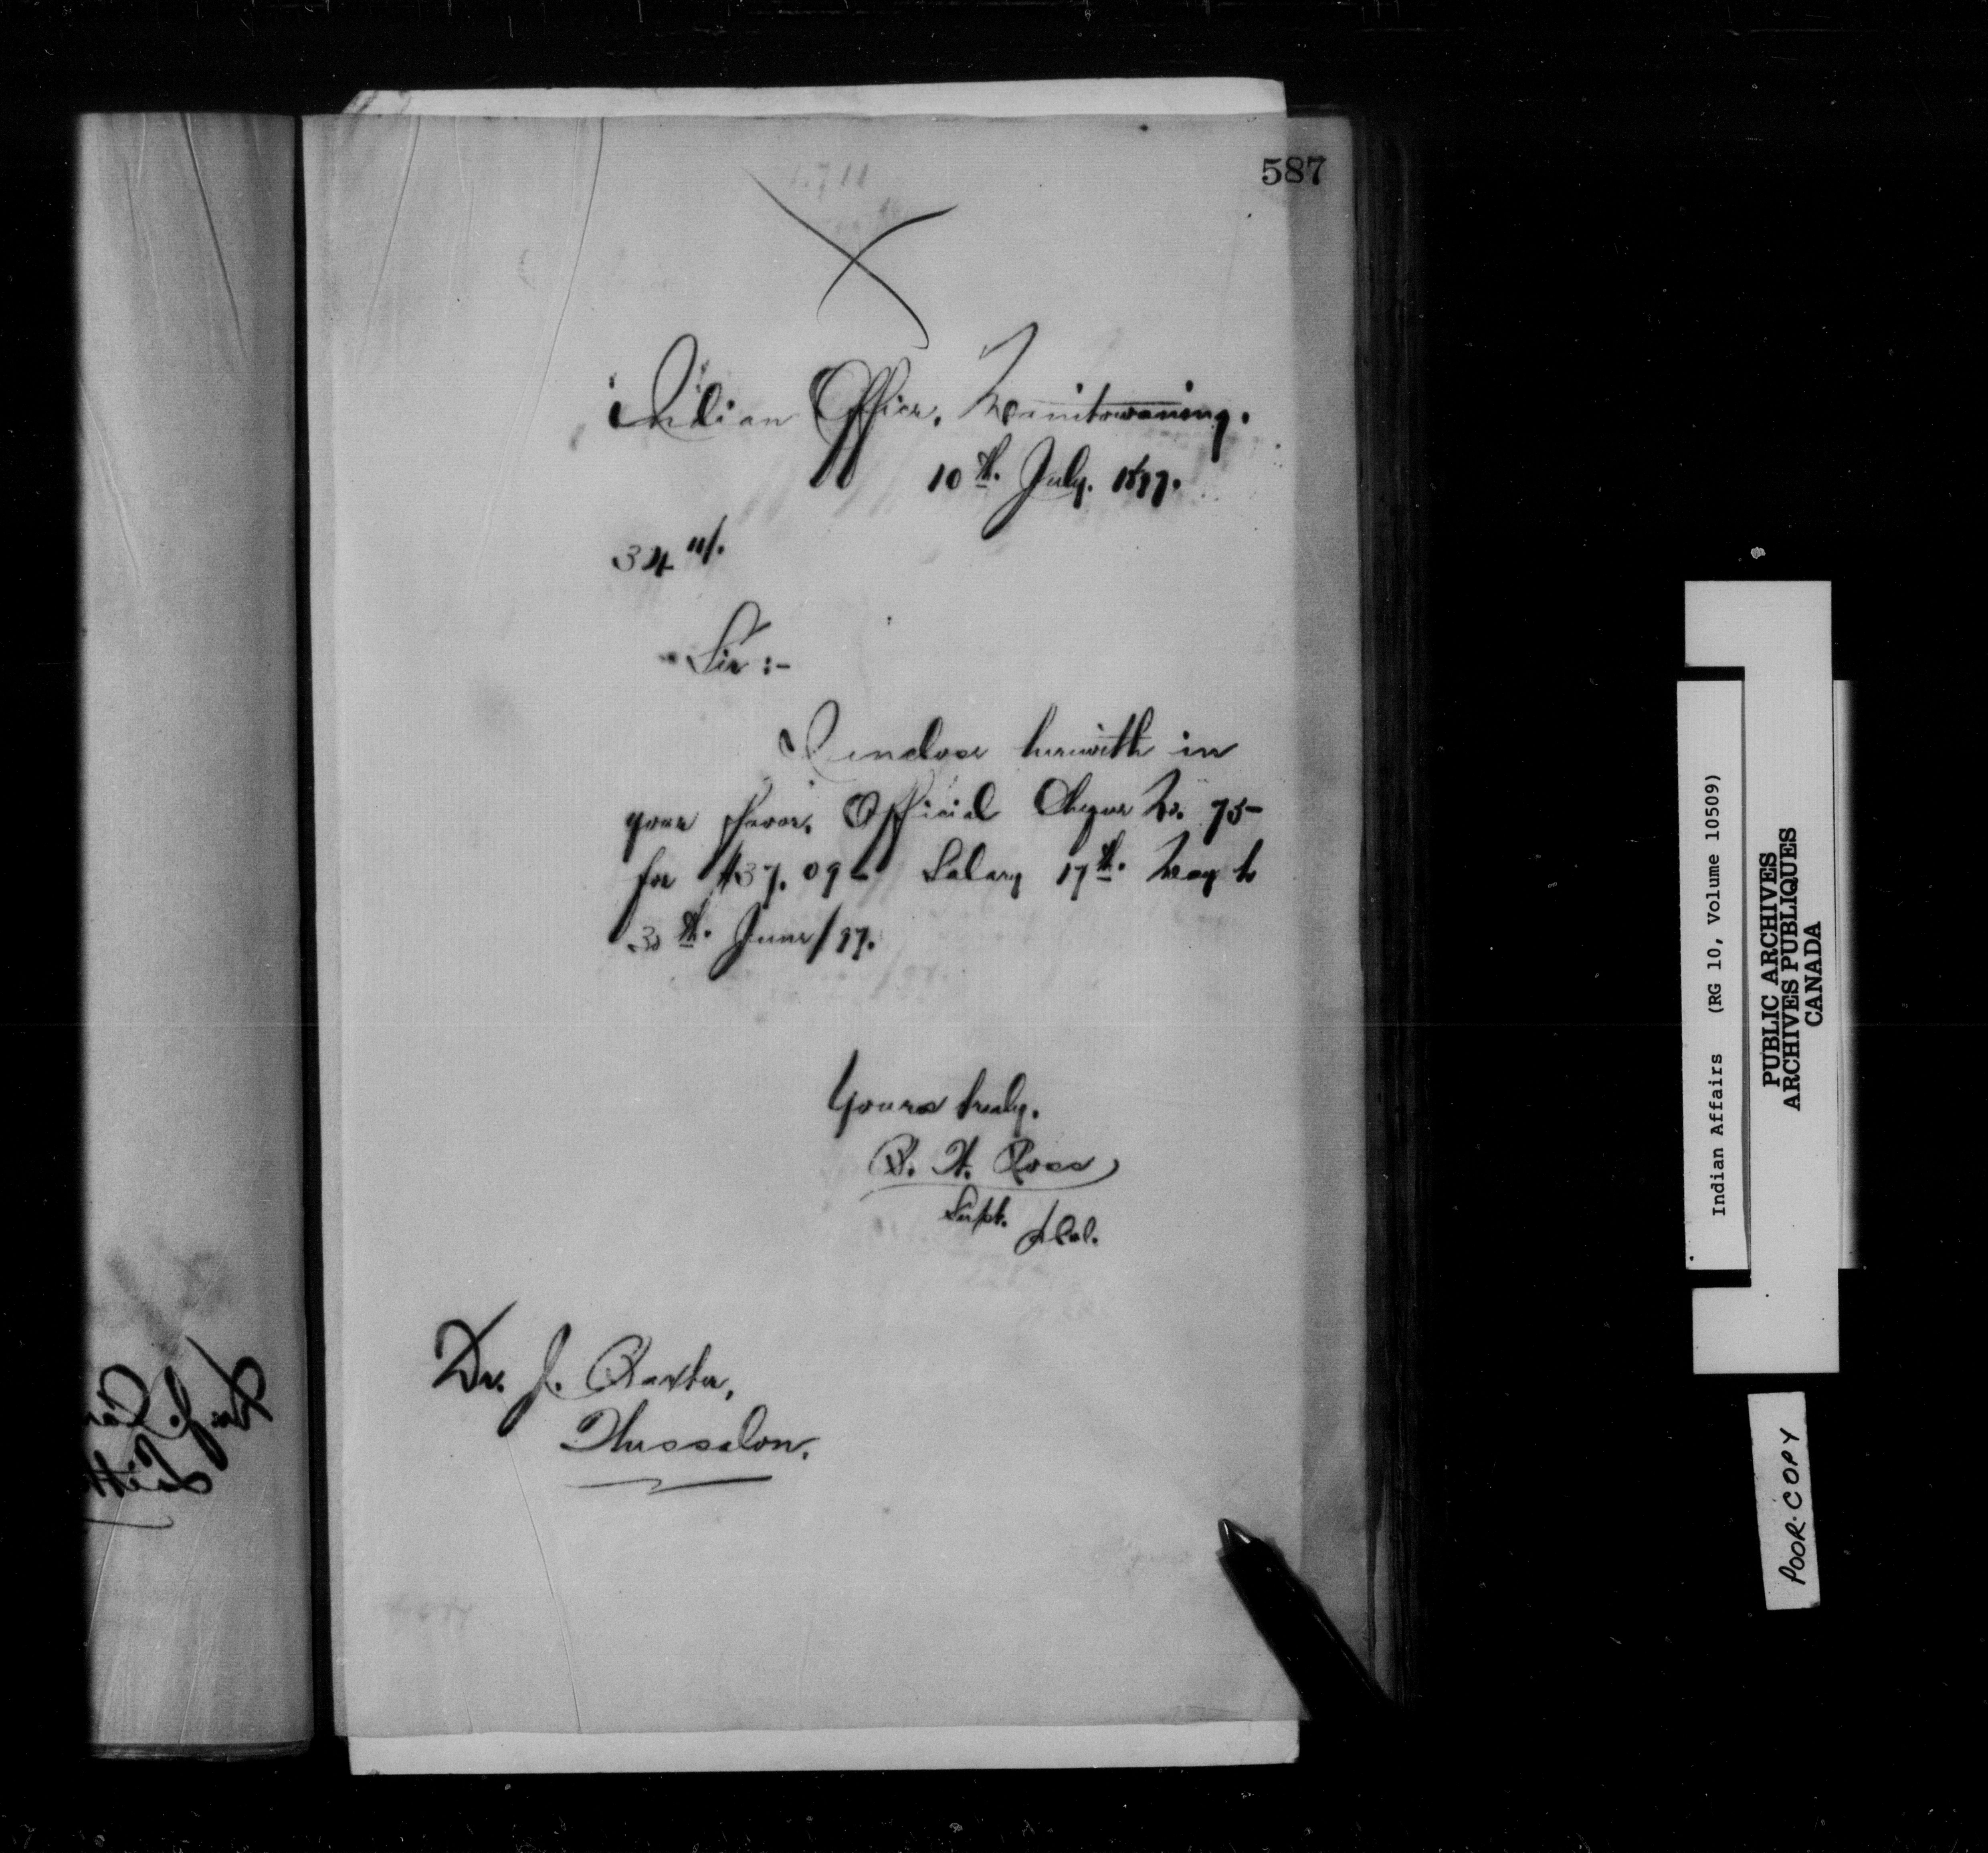 587
Indian Office, Manitowaning.
10th. July. 1897.
Sir :-
I enclose herewith in
your favor, Official Cheque No. 75-
for $37.09 - Salary 17th. May to
30th. June/97.
Yours truly.
B. W. Ross
Supt.
Dr. J. Baxter,
Thessalon.
Indian Affairs (RG 10, Volume 10509)
PUBLIC ARCHIVES
ARCHIVES PUBLIQUES
CANADA
POOR-COPY